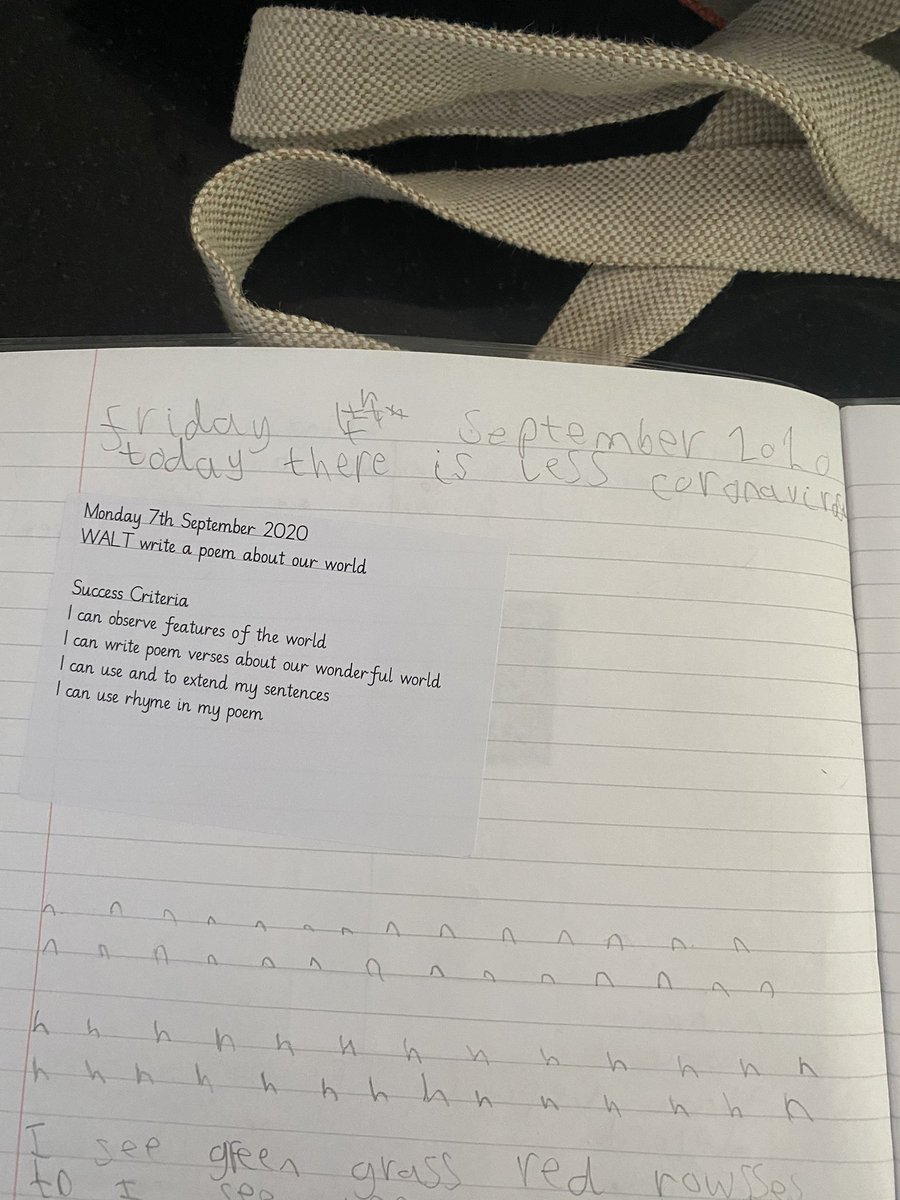 friday September 2020
today there is less coronavirus
Monday 7th September 2020
WALT write a poem about our world
Success Criteria
I can observe features of the world
I can write poem verses about our wonderful world
I can use and to extend my sentences
I can use rhyme in my poem
n n n n n n n n n n n n n n
n n n n n n n n n n n n n n
h h h h h h h h h h h h h
h h h h h h h h h h h h h h
I see green grass red rowsses
to I see